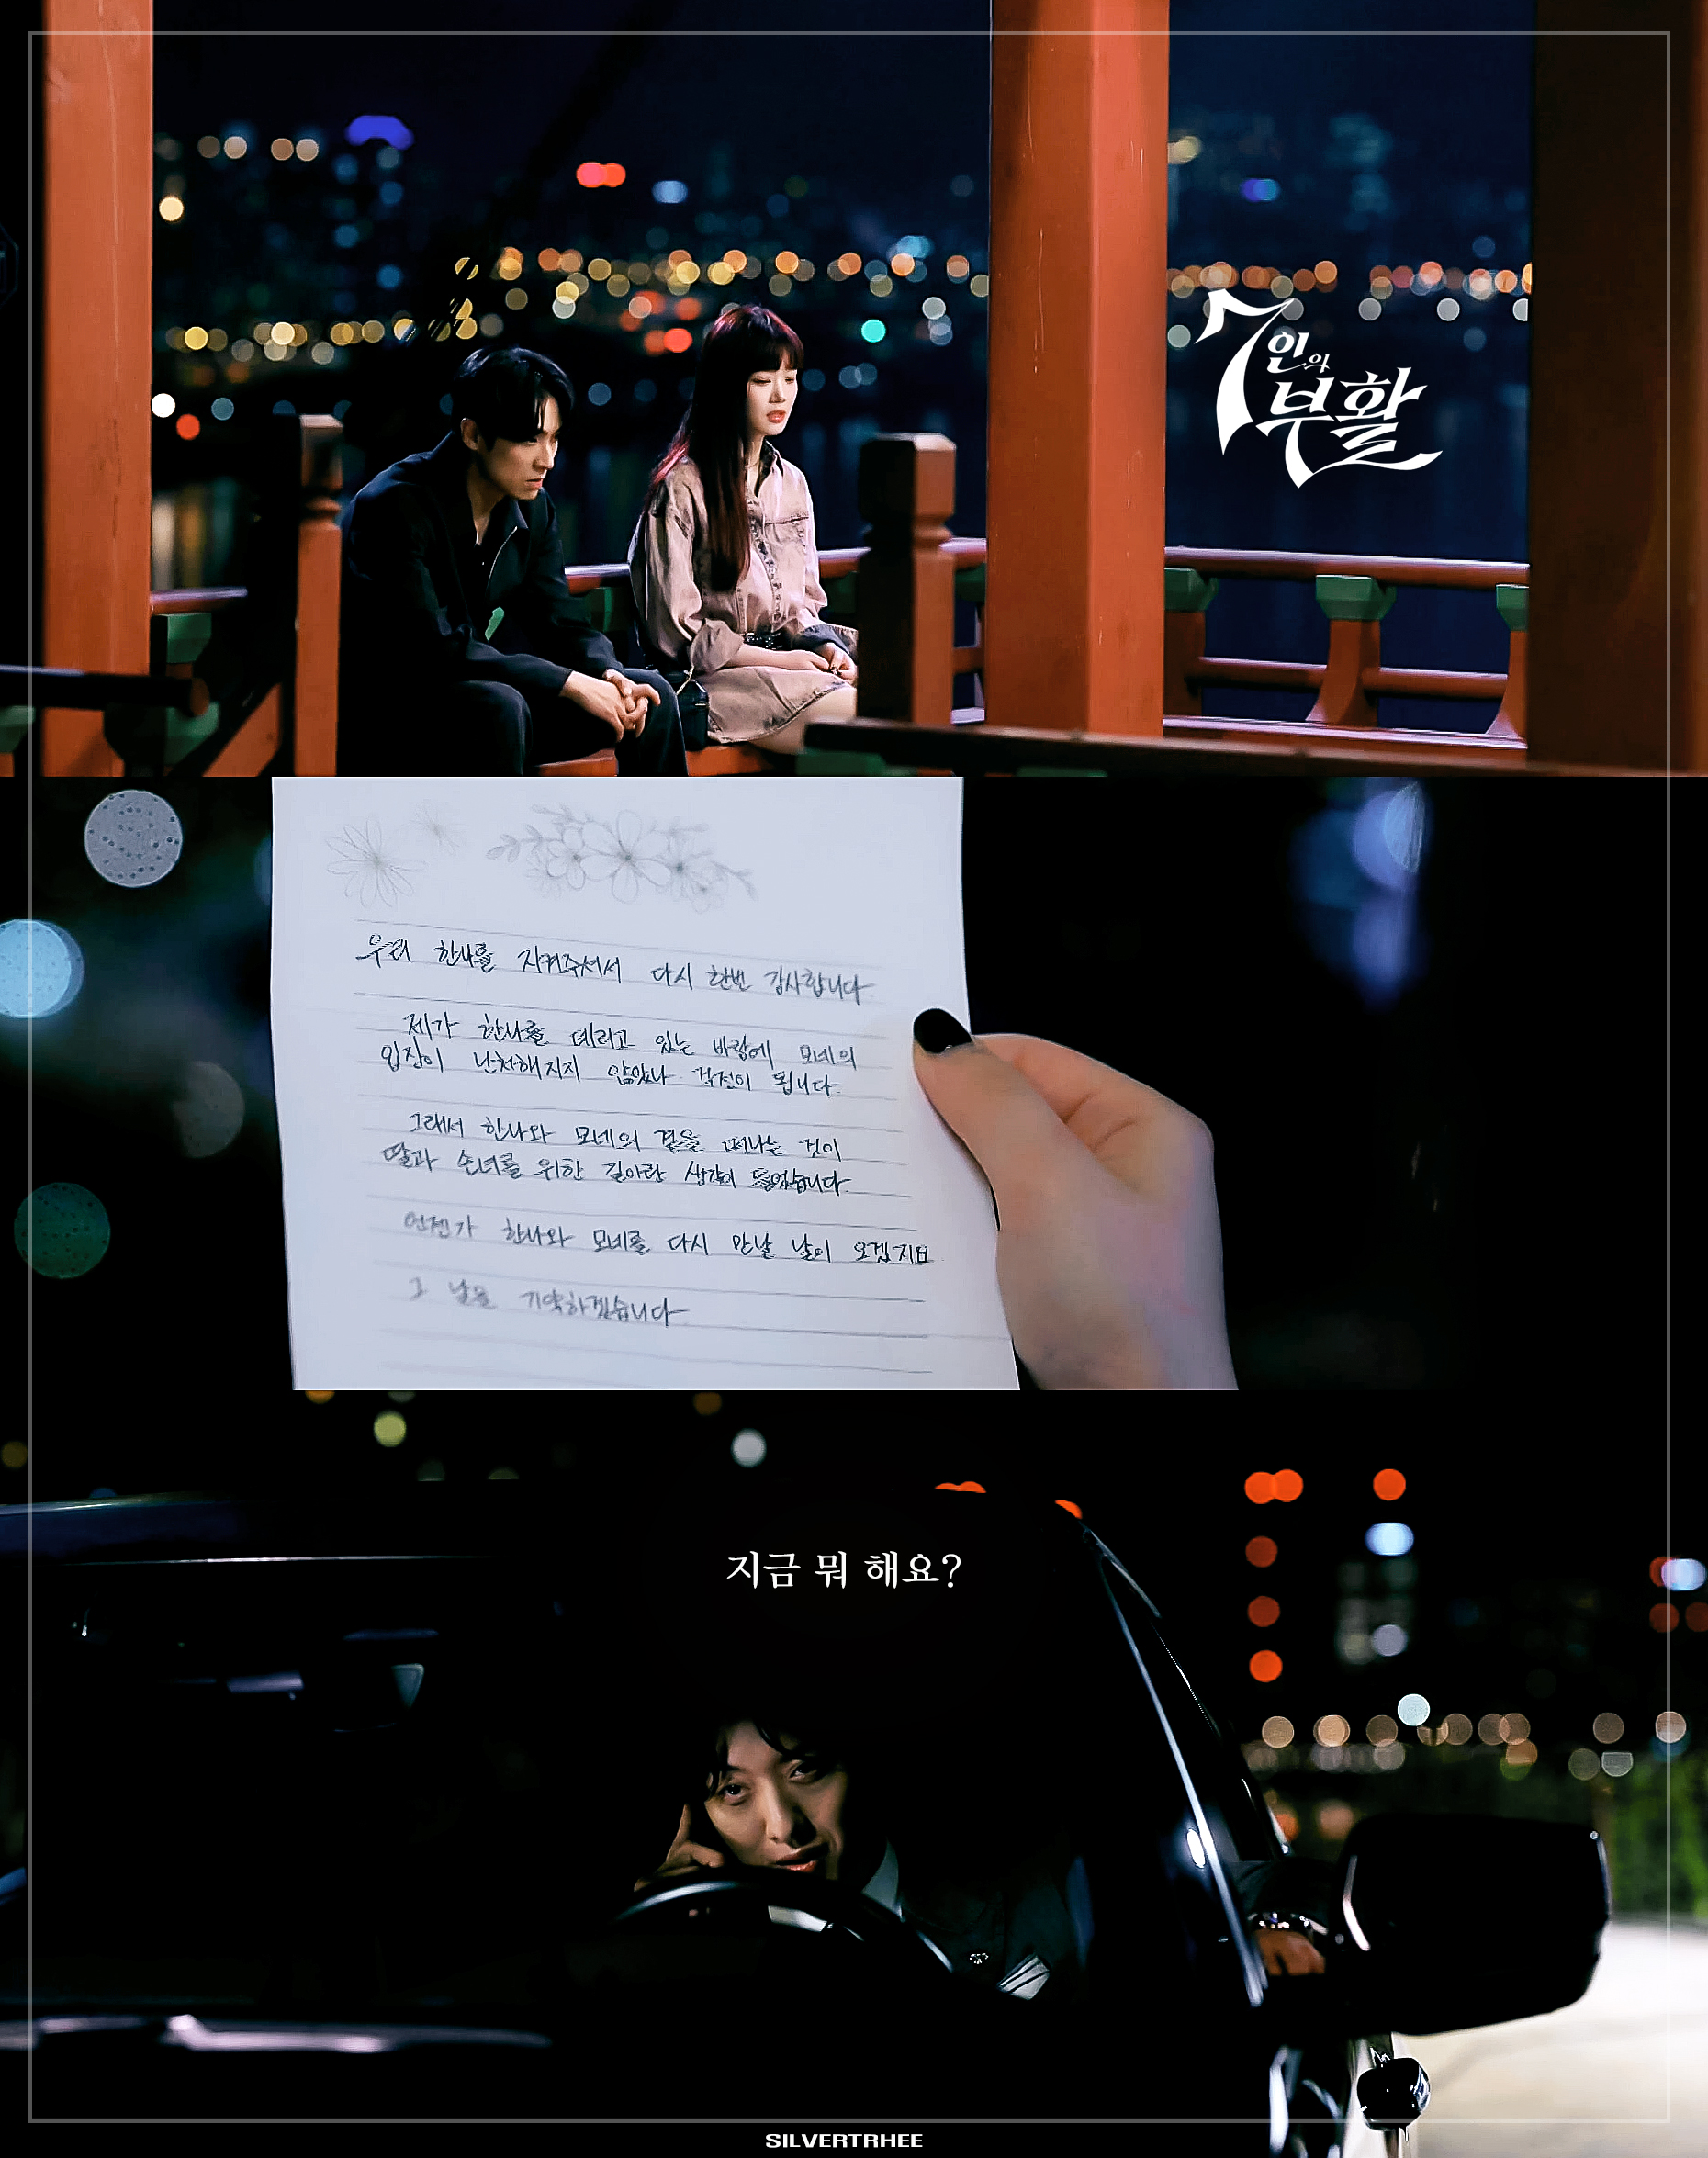 7인의
부활
우리 한나를 지켜주셔서 다시 한번 감사합니다
제가 한나를 데리고 있는 바람에 모네의
입장이 난처해지지 않았나 걱정이 됩니다.
그래서 한나와 모네의 곁을 떠나는 것이
딸과 손녀를 위한 길이란 생각이 들었습니다.
언젠가 한나와 모네를 다시 만날 날이 오겠지요
그 날을 기약하겠습니다
지금 뭐 해요?
SILVERTRHEE